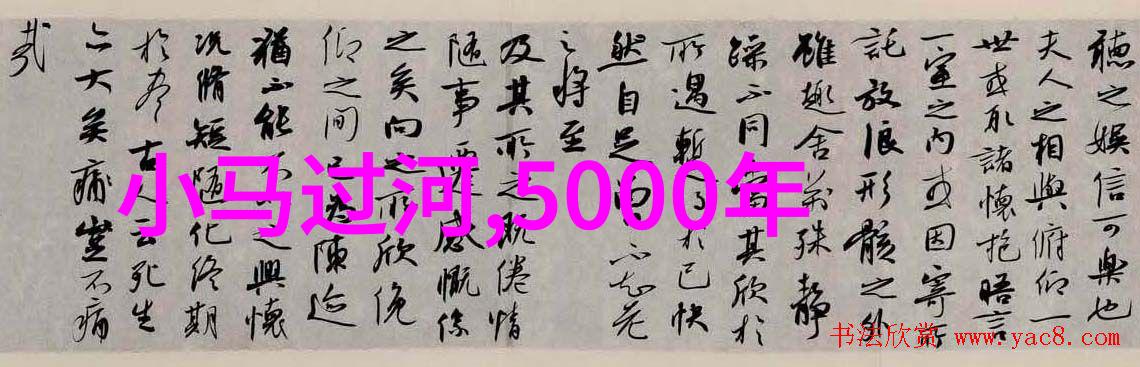 聽之娛信可樂也
夫人之相與俯仰一
世或取諸懷抱晤言
一室之內或因寄所
託放浪形骸之外
雖趣舍萬殊靜
躁不同當其欣於
所遇暫得於己快
然自足曾不知老
之將至
及其所之既倦情
隨事遷感慨係
之矣向之所欣俛
仰之間已為陳迹
猶不能不以之興懷
況脩短隨化終期
於盡古人云死生
亦大矣痛豈不痛
哉
小马过河,5000年
书法欣赏 www.yac8.com